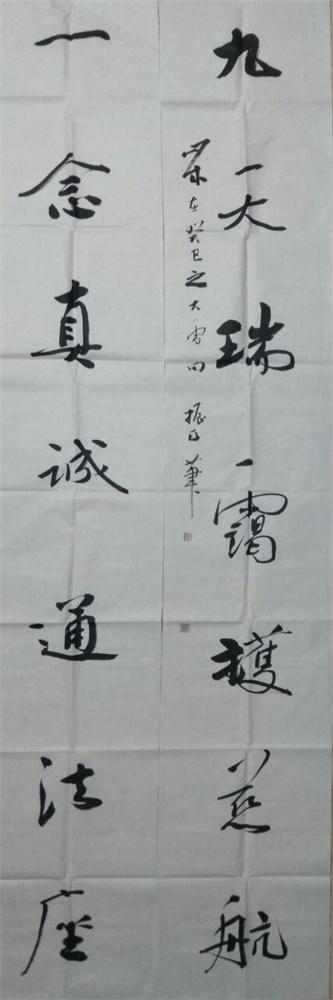 九天瑞霭護慈航
一念真誠通法座
岁在癸巳之大雪日 振 筆